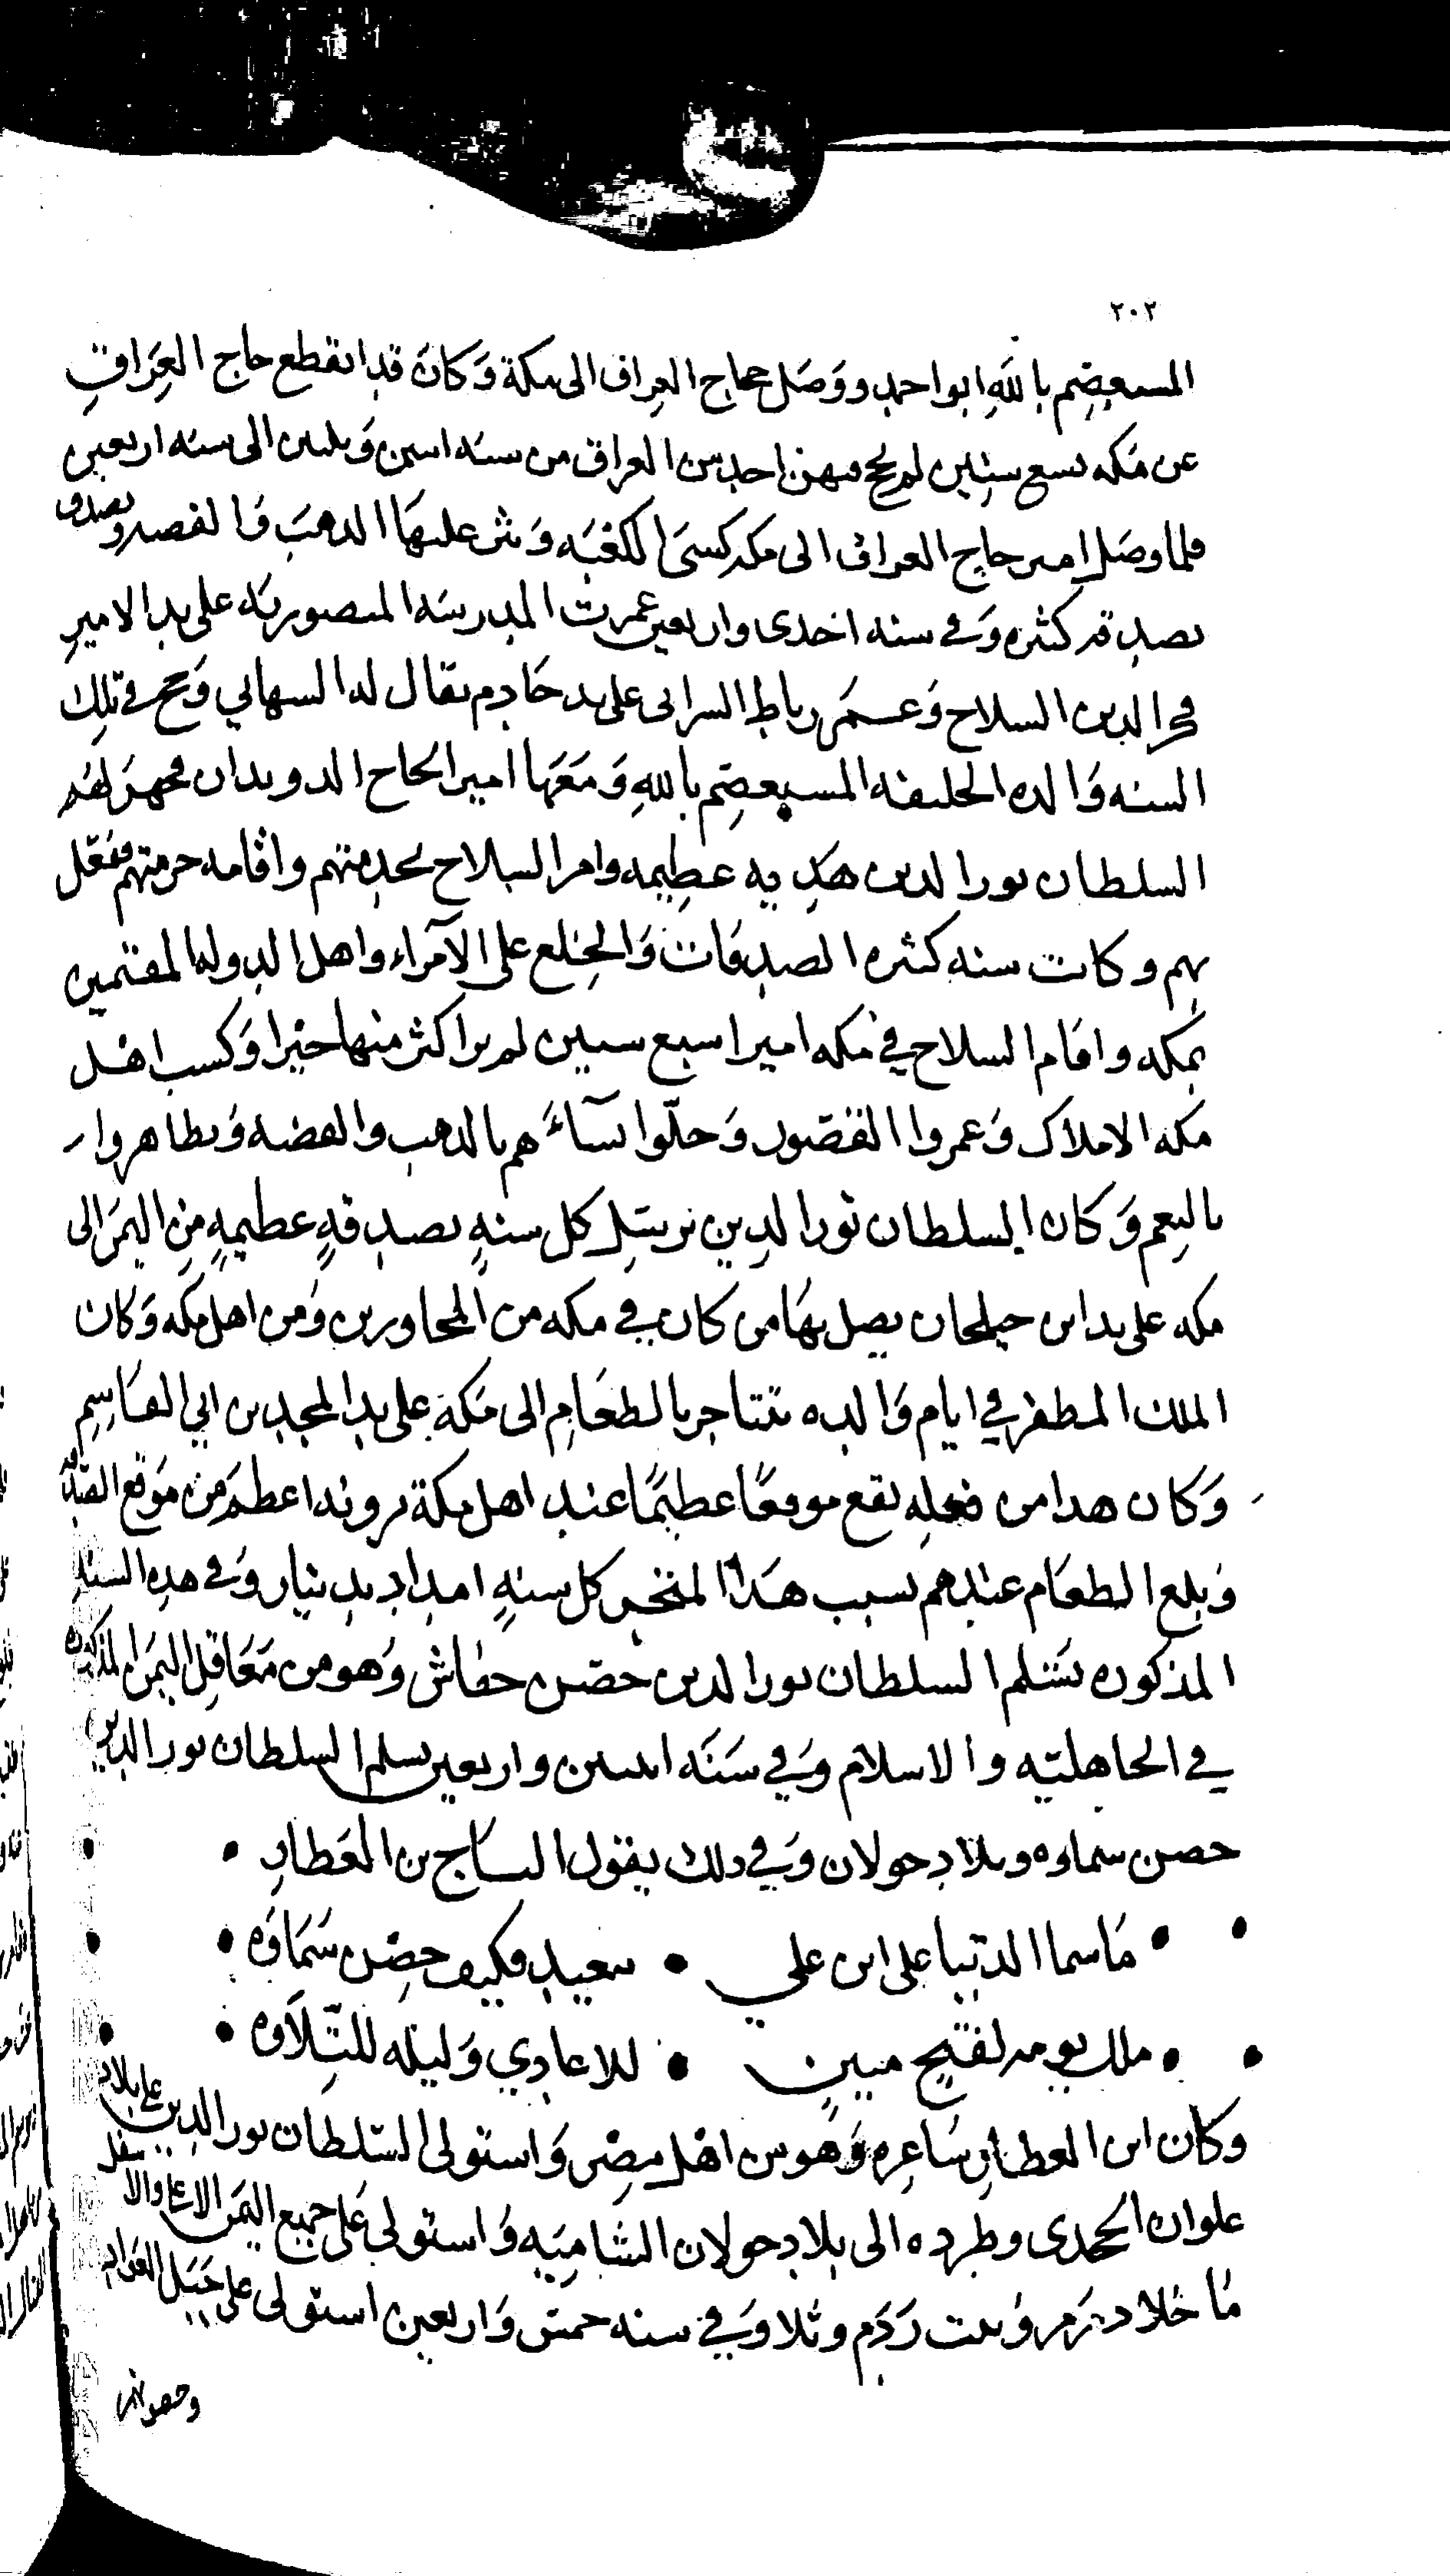 ٢٠٢
المستعصم بالله ابو احمد ووصل حجاج العراق الى مكة وكان قد انقطع حاج العراق
عن مكه سبع سنين لم يحج فيهن احد من العراق من سنه اثنين وثلثين الى سنه اربعين
فلما وصل امير حاج العراق الى مكه كسى الكعبه ونثر عليها الذهب والفضه وتصدق
بصدقه كثيره وفي سنه احدى واربعين عمرت المدرسه المنصوريه على يد الامير
فخر الدين السلاح وعمر رباط السرابي على يد خادم يقال له السهابي وحج في تلك
السنه والده الخليفه المستعصم بالله ومعها امير الحاج الدويدان فجهز لهم
السلطان نور الدين هديه عظيمه وامر السلاح بخدمتهم واقامه حرمتهم ففعل
بهم وكانت سنه كثيره الصدقات والخلع على الامراء واهل الدوله المقيمين
بمكه واقام السلاح في مكه اميرا سبع سنين لم ير اكثر منها خيرا وكسب اهل
مكه الاملاك وعمروا القصور وحلوا نسآءهم بالذهب والفضه وتظاهروا
بالنعم وكان السلطان نور الدين يرسل كل سنةٍ بصدقةٍ عظيمةٍ من اليمن الى
مكه على يد ابن يصل بها من كان في مكه من المجاورين ومن اهل مكه وكان
الملك المظفر في ايام والده يتتاجر بالطعام الى مكة على يد المجد بن ابي القاسم
وكان هدا من فعله يقع موقعًا عظيمًا عند اهل مكة يرونه اعظم من موقع الصدقه
وبلغ الطعام عندهم بسبب هذا المتجر كل سنةٍ امداد بدينار وفي هذه السنه
المذكوره تسلم السلطان نور الدين حصن حفاش وهو من معاقل اليمن المذكوره
في الجاهليه والاسلام وفي سنه اثنين واربعين تسلم السلطان نور الدين
حصن سماوه وبلاد خولان وفي ذلك يقول التاج بن العطار
ما سما الدنيا على ابن علي • سعيد فكيف حصن سماوه
ملك يومه لفتحٍ مبينٍ • للاعادي وليله للتلاوه
وكان ابن العطار شاعره وهو من اهل مصر واستولى السلطان نور الدين على بلاد
علوان الجحدرى وطرده الى بلاد خولان الشاميه واستولى على جميع اليمن الاعلى والاسفل
ما خلا ذمرمر وبيت ردم وثلا وفي سنه خمس واربعين استولى على جبل العوادر
وحصونه